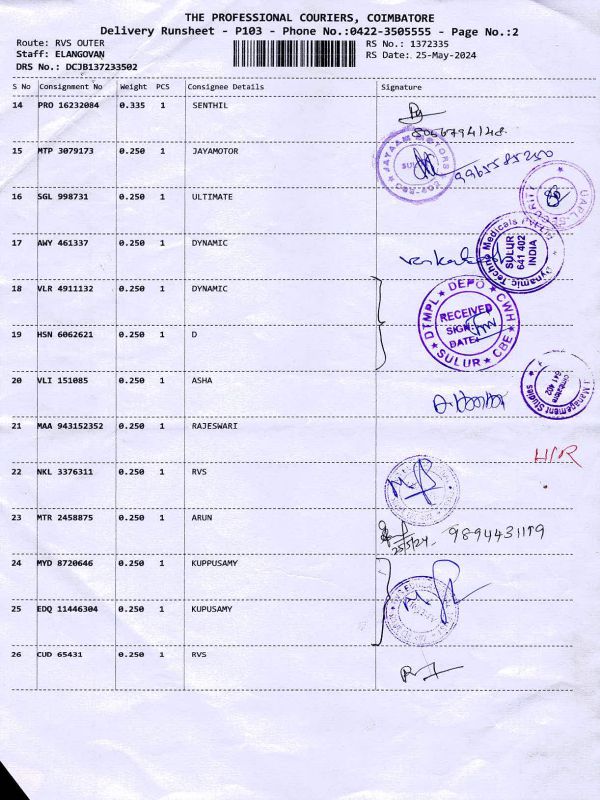 THE PROFESSIONAL COURIERS, COIMBATORE
Delivery Runsheet - P103 - Phone No.:0422-3505555 - Page No.:2
Route: RVS OUTER
Staff: ELANGOVAN
DRS No.: DCJB137233502
RS No.: 1372335
RS Date: 25-May-2024
S No Consignment No Weight PCS Consignee Details Signature
14 PRO 16232084 0.335 1 SENTHIL
15 MTP 3079173 0.250 1 JAYAMOTOR
JAYAAM MOTORS
9965585250
16 SGL 998731 0.250 1 ULTIMATE
17 AWY 461337 0.250 1 DYNAMIC
Dynamic Techno Medicals
SULUR
641 402
INDIA
18 VLR 4911132 0.250 1 DYNAMIC
DTMPL ★ DEPO ★ CWH
RECEIVED
SIGN:
DATE:
★ SULUR ★ CBE ★
19 HSN 6062621 0.250 1 D
20 VLI 151085 0.250 1 ASHA
Management Studies
641 402
21 MAA 943152352 0.250 1 RAJESWARI
22 NKL 3376311 0.250 1 RVS
23 MTR 2458875 0.250 1 ARUN
25/5/24
24 MYD 8720646 0.250 1 KUPPUSAMY
25 EDQ 11446304 0.250 1 KUPUSAMY
26 CUD 65431 0.250 1 RVS